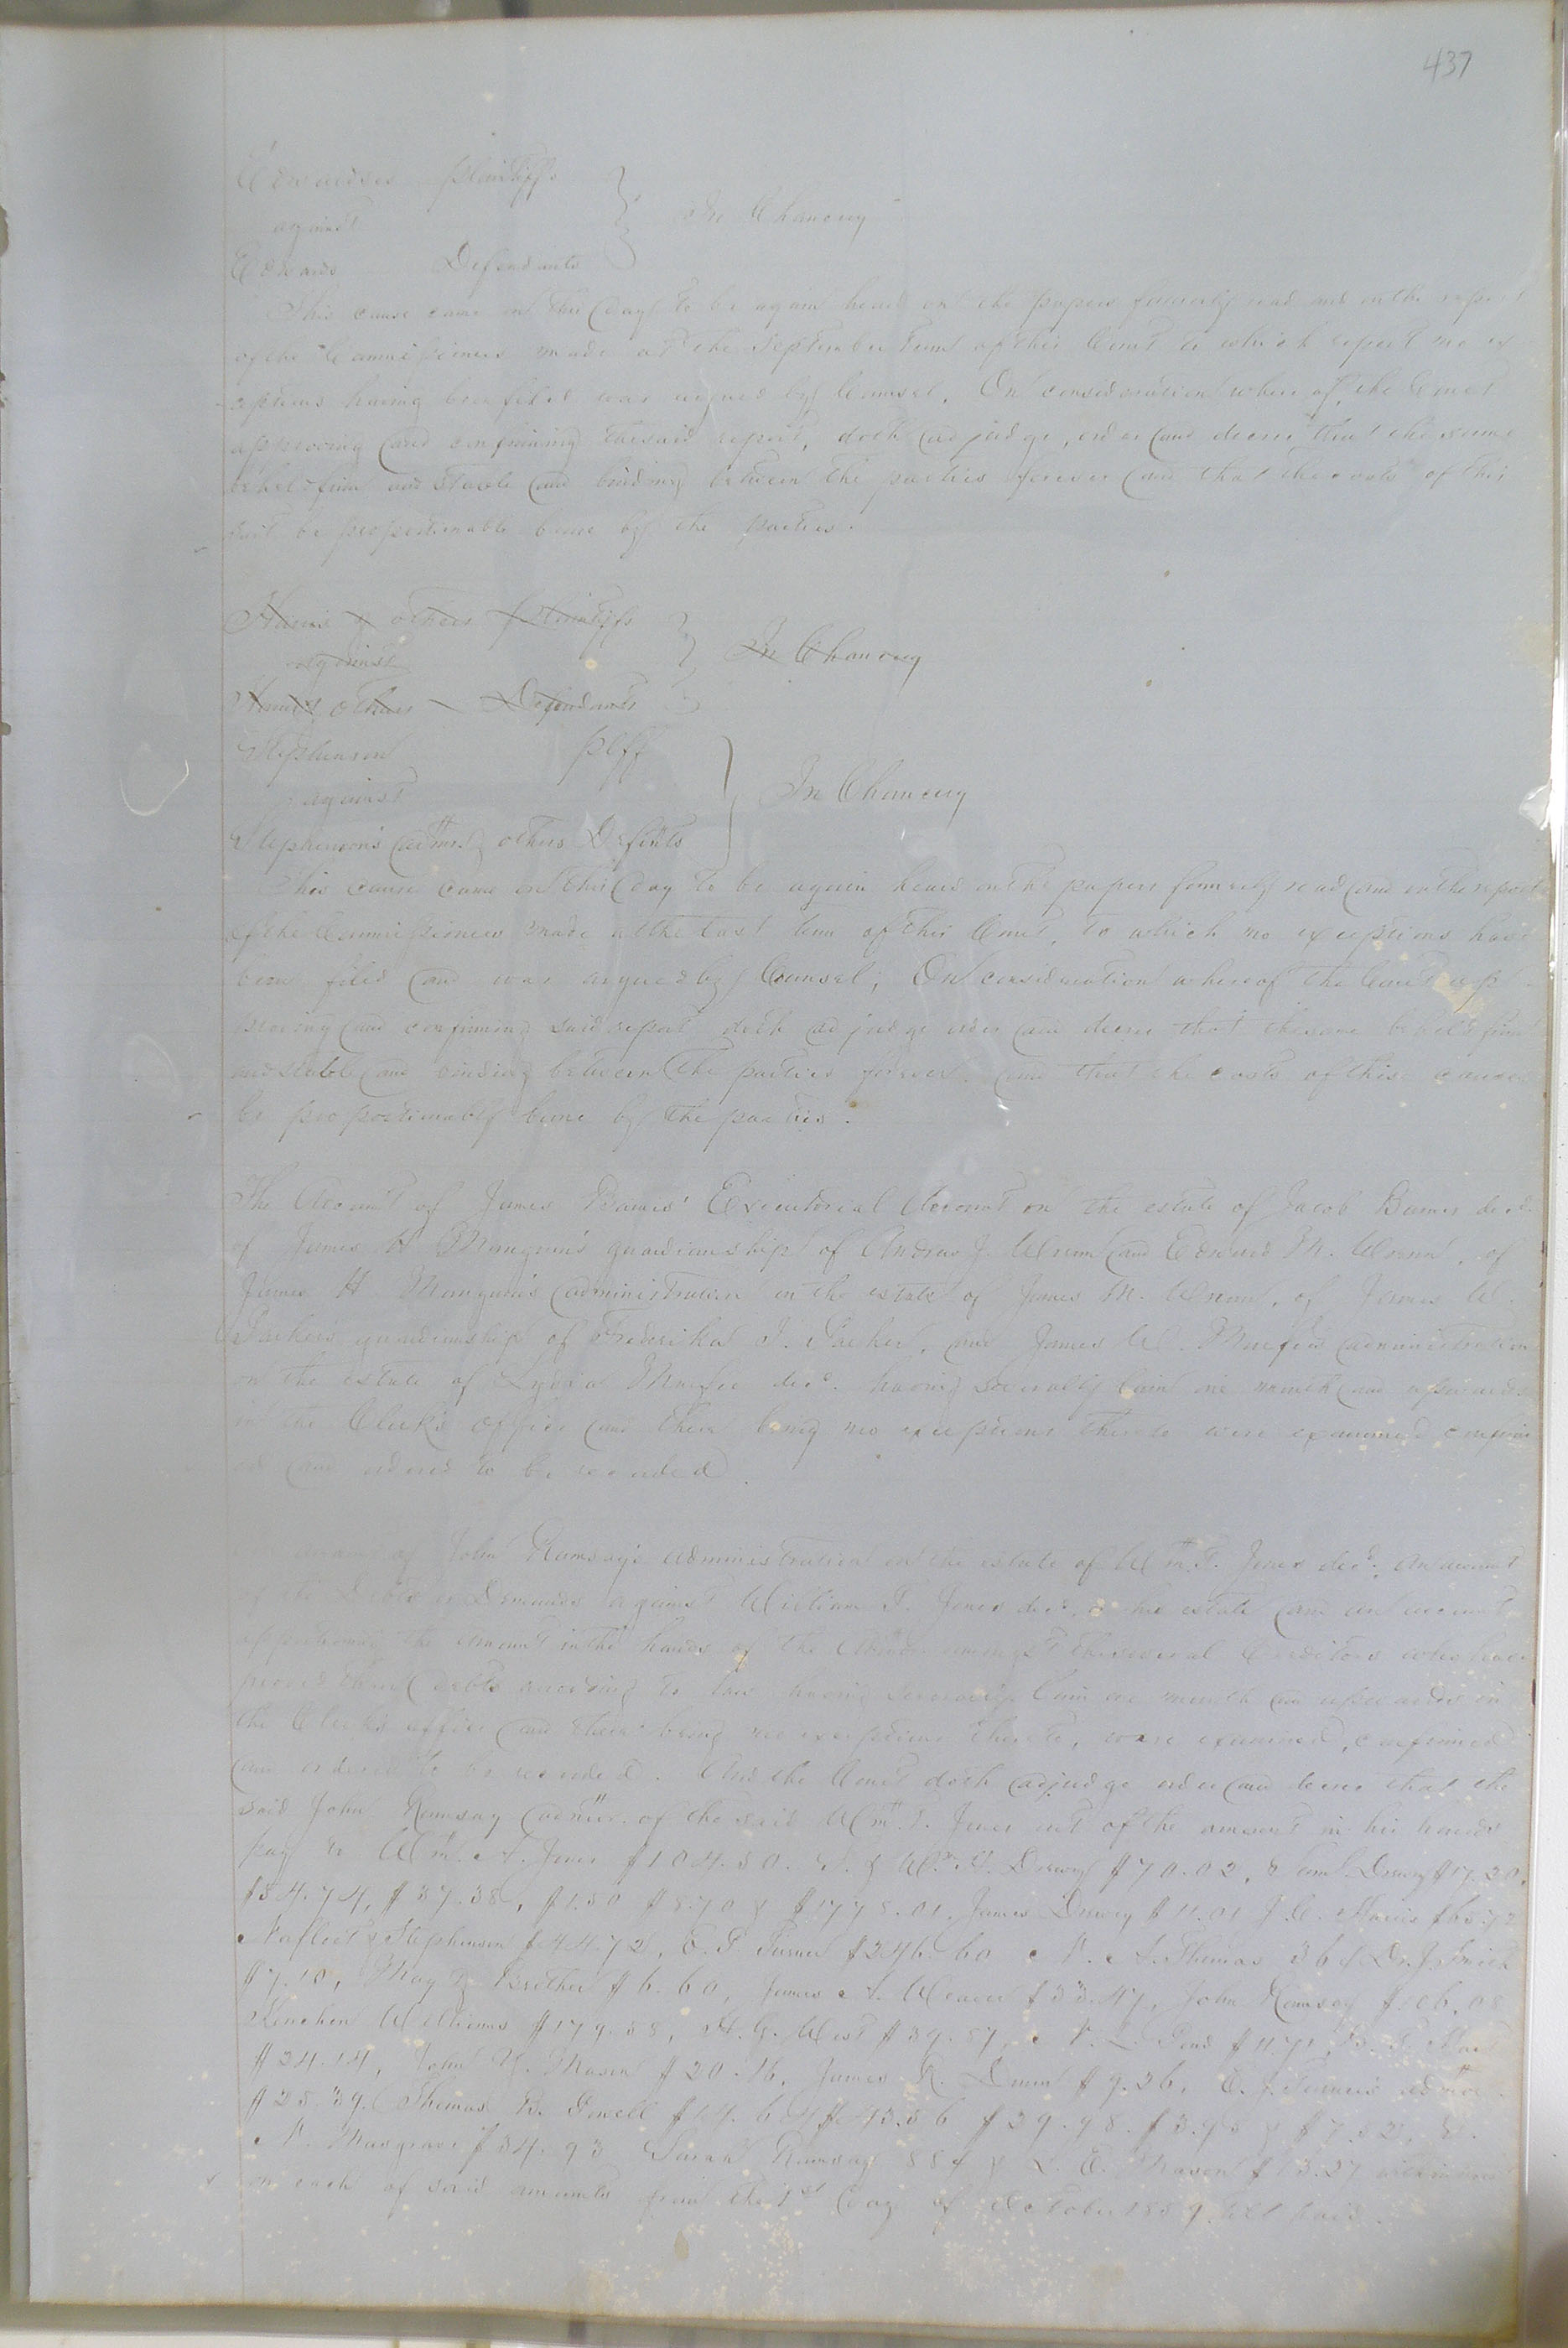 437
Edwardses plaintiffs
against
In Chancery
Edwards Defendants
This cause came on this day to be again heard on the papers formerly read and on the report
of the Commissioners made at the September term of this Court to which report no ex
ceptions having been filed was argued by Counsel. On consideration whereof, the Court
approving and confirming the said report, doth adjudge, order and decree that the same
be held firm and stable and binding between the parties forever and that the costs of this
suit be proportionable borne by the parties.
Harris & others plaintiffs
against
In Chancery
others Defendants
Stephenson plff
against
In Chancery
Stephenson's admr. & others Defdts
This cause came on this day to be again heard on the papers formerly read and on the report
of the Commissioners made at the last term of this Court, to which no exceptions have
been filed and was argued by Counsel; On consideration whereof the Court ap
proving and confirming said report doth adjudge order and decree that the same be held firm
and stable and binding between the parties forever. and that the costs of this cause
be proportionably borne by the parties.
The Account of James Barnes' Executorial Account on the estate of Jacob Barnes decd.
of James H Mangum's guardianship of Andrew J. Wrenn and Edward M. Wrenn, of
James H Mangum's administration on the estate of James M. Wrenn, of James W.
Parker's guardianship of Frederika J. Parker, and James W. Murfee's administration
on the estate of Lydia Murfee decd. having severally lain one month and upwards
in the Clerk's office and there being no exceptions thereto were examined confirm
ed and ordered to be recorded.
account of John Ramsay's administration on the estate of Wm. T. Jones decd. An account
of the Debts & Demands against William T. Jones decd. & his estate and an account
apportioning the amount in the hands of the Admor. amongst the several Creditors who have
proved their debts according to law having severally lain one month and upwards in
the Clerk's office and there being no exceptions thereto, were examined, confirmed
and ordered to be recorded. And the Court doth adjudge order and decree that the
said John Ramsay admr. of the said Wm. T. Jones out of the amount in his hands
pay to Wm. A. Jones $104.80. & Wm. H. Drewry $70.02, Saml. Drewry $17.20.
$54.74, $37.38, $1.50 $8.70 & James Drewry $11.01 Harris
Norfleet & Stephenson $44.72, Turner $246.60 Thomas 36¢ Dr. J. Smith
$7.10, May & Brother $6.60, James A. Weaver $33.47, John Ramsay $106.08
Kinchen Williams West Pond
$24.14, John Y. Mason $20.16, James R. Dunn $9.26, Turner's admor.
$25.39. Thomas B. $29.98. $3.95 &
Musgrave $34.93 Sarah Ramsay 88¢ & Mason $13.27 with interest
on each of said amounts from the 1st day of October 1859 till paid.